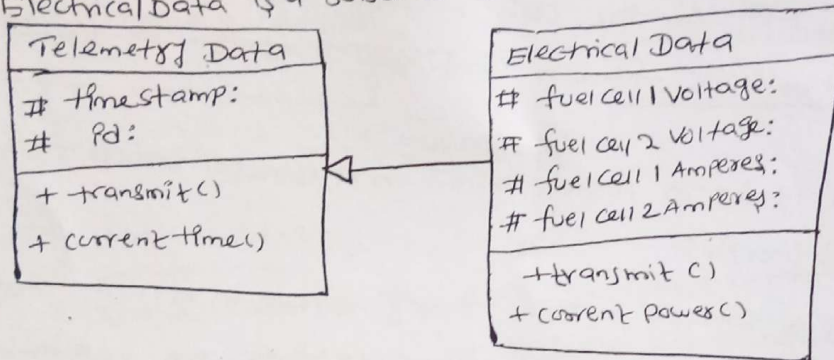 Electrical Data is a
Telemetry Data
# timestamp:
# id:
+ transmit()
+ current time()
Electrical Data
# fuel cell 1 Voltage:
# fuel cell 2 Voltage:
# fuel cell 1 Amperes:
# fuel cell 2 Amperes:
+ transmit ()
+ current power()